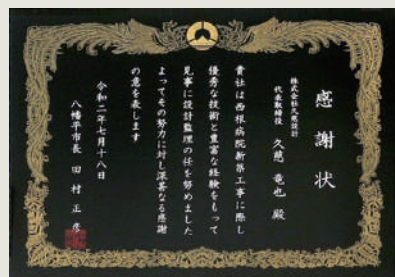 感謝状
株式会社久慈設計
代表取締役 久慈竜也 殿
貴社は西根病院新築工事に際し
優秀な技術と豊富な経験をもって
見事に設計監理の任を努めました
よってその努力に対し深甚なる感謝
の意を表します
令和二年七月十八日
八幡平市長 田村正彦